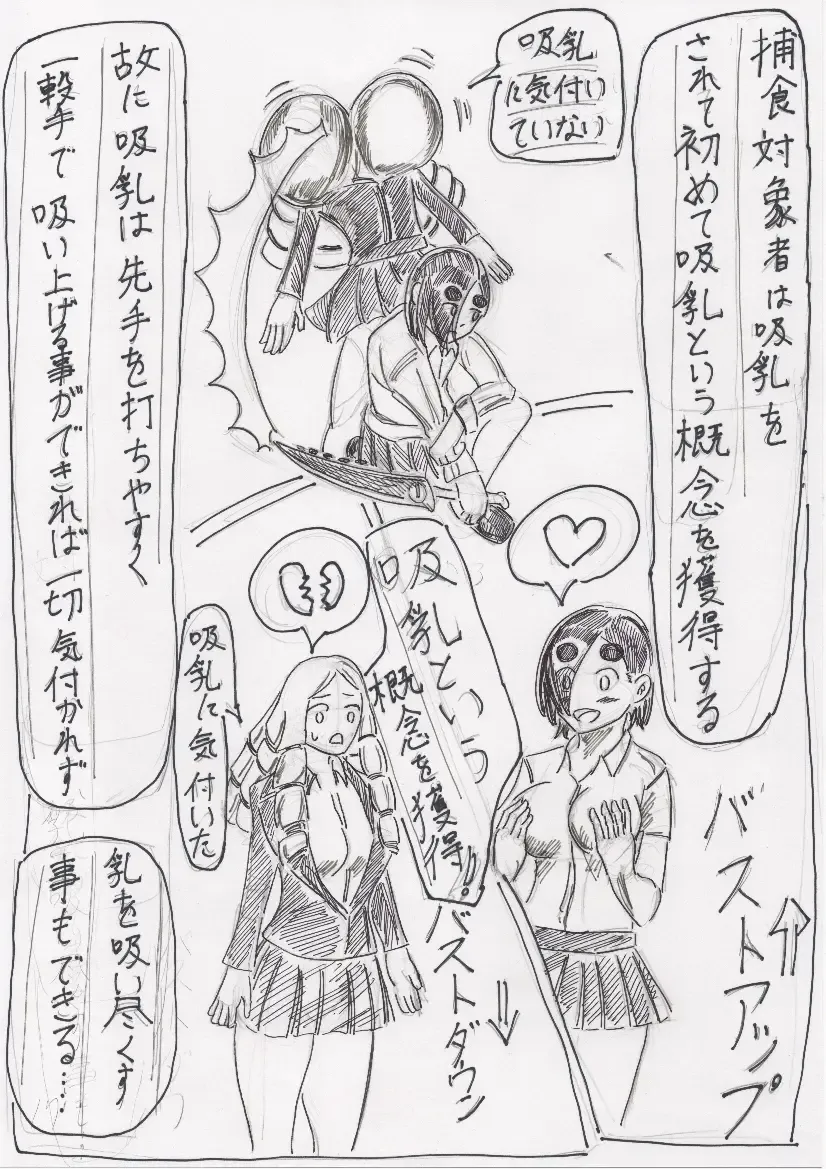 捕食対象者は吸乳を
されて初めて吸乳という概念を獲得する
吸乳
に気付い
ていない
故に吸乳は先手を打ちやすく
一撃手で吸い上げる事ができれば一切気付かれず
乳を吸い尽くす
事もできる……
吸乳という
概念を獲得!!
バストアップ
吸乳に気付いた
バストダウン